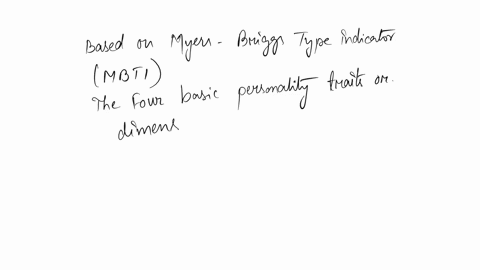 Based on Myers - Briggs Type indicator
(MBTI)
The Four basic personality traits or.
dimens